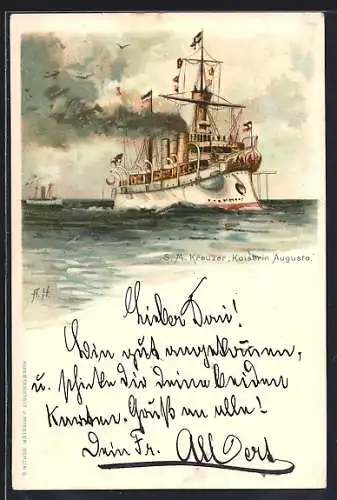 S. M. Kreuzer „Kaiserin Augusta.“
A. H.
Lieber
Bin gut angekommen,
u. schicke Dir deine beiden
Karten. Gruß an alle!
Dein Fr. Albert